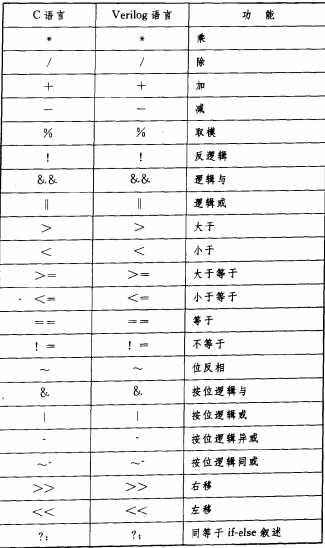 C 语言 Verilog 语言 功 能
* * 乘
/ / 除
+ + 加
- - 减
% % 取模
! ! 反逻辑
&& && 逻辑与
|| || 逻辑或
> > 大于
< < 小于
>= >= 大于等于
<= <= 小于等于
== == 等于
! = ! = 不等于
~ ~ 位反相
& & 按位逻辑与
| | 按位逻辑或
按位逻辑异或
按位逻辑同或
>> >> 右移
<< << 左移
?: ?: 同等于 if-else 叙述